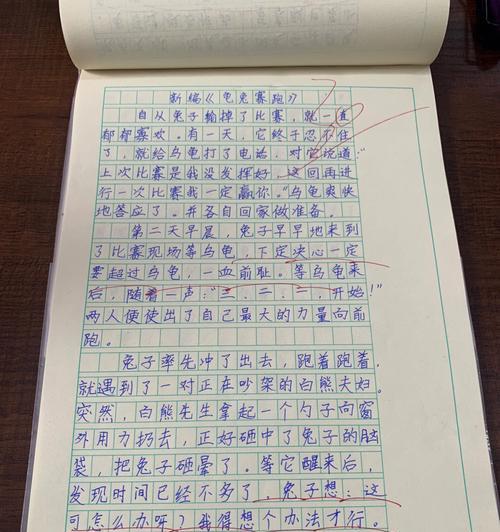 新编《龟兔赛跑》
自从兔子输掉了比赛，就一直
郁郁寡欢。有一天，它终于忍不住
了，就给乌龟打了电话，对它说道：“
上次比赛是我没发挥好，这回再进
行一次比赛我一定赢你。”乌龟爽快
地答应了。并各自回家做准备。
第二天早晨，兔子早早地来到
了比赛现场等乌龟，下定决心一定
要超过乌龟，一血前耻。等乌龟来
后，随着一声：“三、二、一，开始！”
两人便使出了自己最大的力量向前
跑。
兔子率先冲了出去，跑着跑着，
就遇到了一对正在吵架的白熊夫妇。
突然，白熊先生拿起一个勺子向窗
外用力扔去，正好砸中了兔子的脑
袋，把兔子砸晕了。等它醒来后，
发现时间已经不多了，兔子想：这
可怎么办呀？我得想个办法才行。